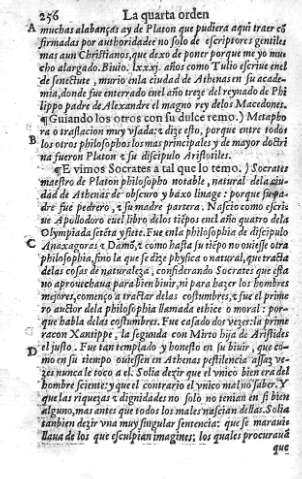 256 La quarta orden
A muchas alabanças ay de Platon que pudiera aqui traer cõ
firmadas por authoridades no solo de escriptores gentiles
mas aun Christianos, que dexo de poner porque me yo mu
cho alargado. Biuio. lxxxj. años como Tulio escriue enel
de senectute, murio enla ciudad de Athenas en su acade-
mia, donde fue enterrado enel año treze del reynado de Phi
lippo padre de Alexandre el magno rey delos Macedones.
¶Guiando los otros con su dulce remo.) Metapho
ra o traslacion muy vsada: τ dize esto, porque entre todos
B los otros philosophos los mas principales y de mayor doctri
na fueron Platon τ su discipulo Aristotiles.
¶E vimos Socrates a tal que lo temo.) Socrates
maestro de Platon philosopho notable, natural dela ciu-
dad de Athenas de obscuro y baxo linage: porque su pa-
dre fue pedrero, τ su madre partera. Nascio como escri-
ue Apollodoro enel libro delos tiẽpos enel año quatro dela
Olympiada setẽta y siete. Fue enla philosophia de discipulo
C Anaxagoras τ Damõ, τ como hasta su tiẽpo no ouiesse otra
philosophia, sino la que se dize physica o natural, que tracta
delas cosas de naturaleza, considerando Socrates que esta
no aprouechaua para bien biuir, ni para hazer los hombres
mejores, começo a tractar delas costumbres, τ fue el prime
ro auctor dela philosophia llamada ethice o moral: por-
que habla delas costumbres. Fue casado dos vezes: la prime
ra con Xantippe, la segunda con Mirto hija de Aristides
el justo. Fue tan templado y honesto en su biuir, que co-
D mo en su tiempo ouiessen en Athenas pestilencia assaz ve-
zes nunca le toco a el. Solia dezir que el vnico bien era del
hombre sciente: y que el contrario el vnico mal no saber. Y
que las riquezas τ dignidades no solo no tenian en si bien
alguno, mas antes que todos los males nascian dellas. Solia
tanbien dezir vna muy singular sentencia: que se marauic
llaua de los que esculpian imagines; los quales procurauã
que